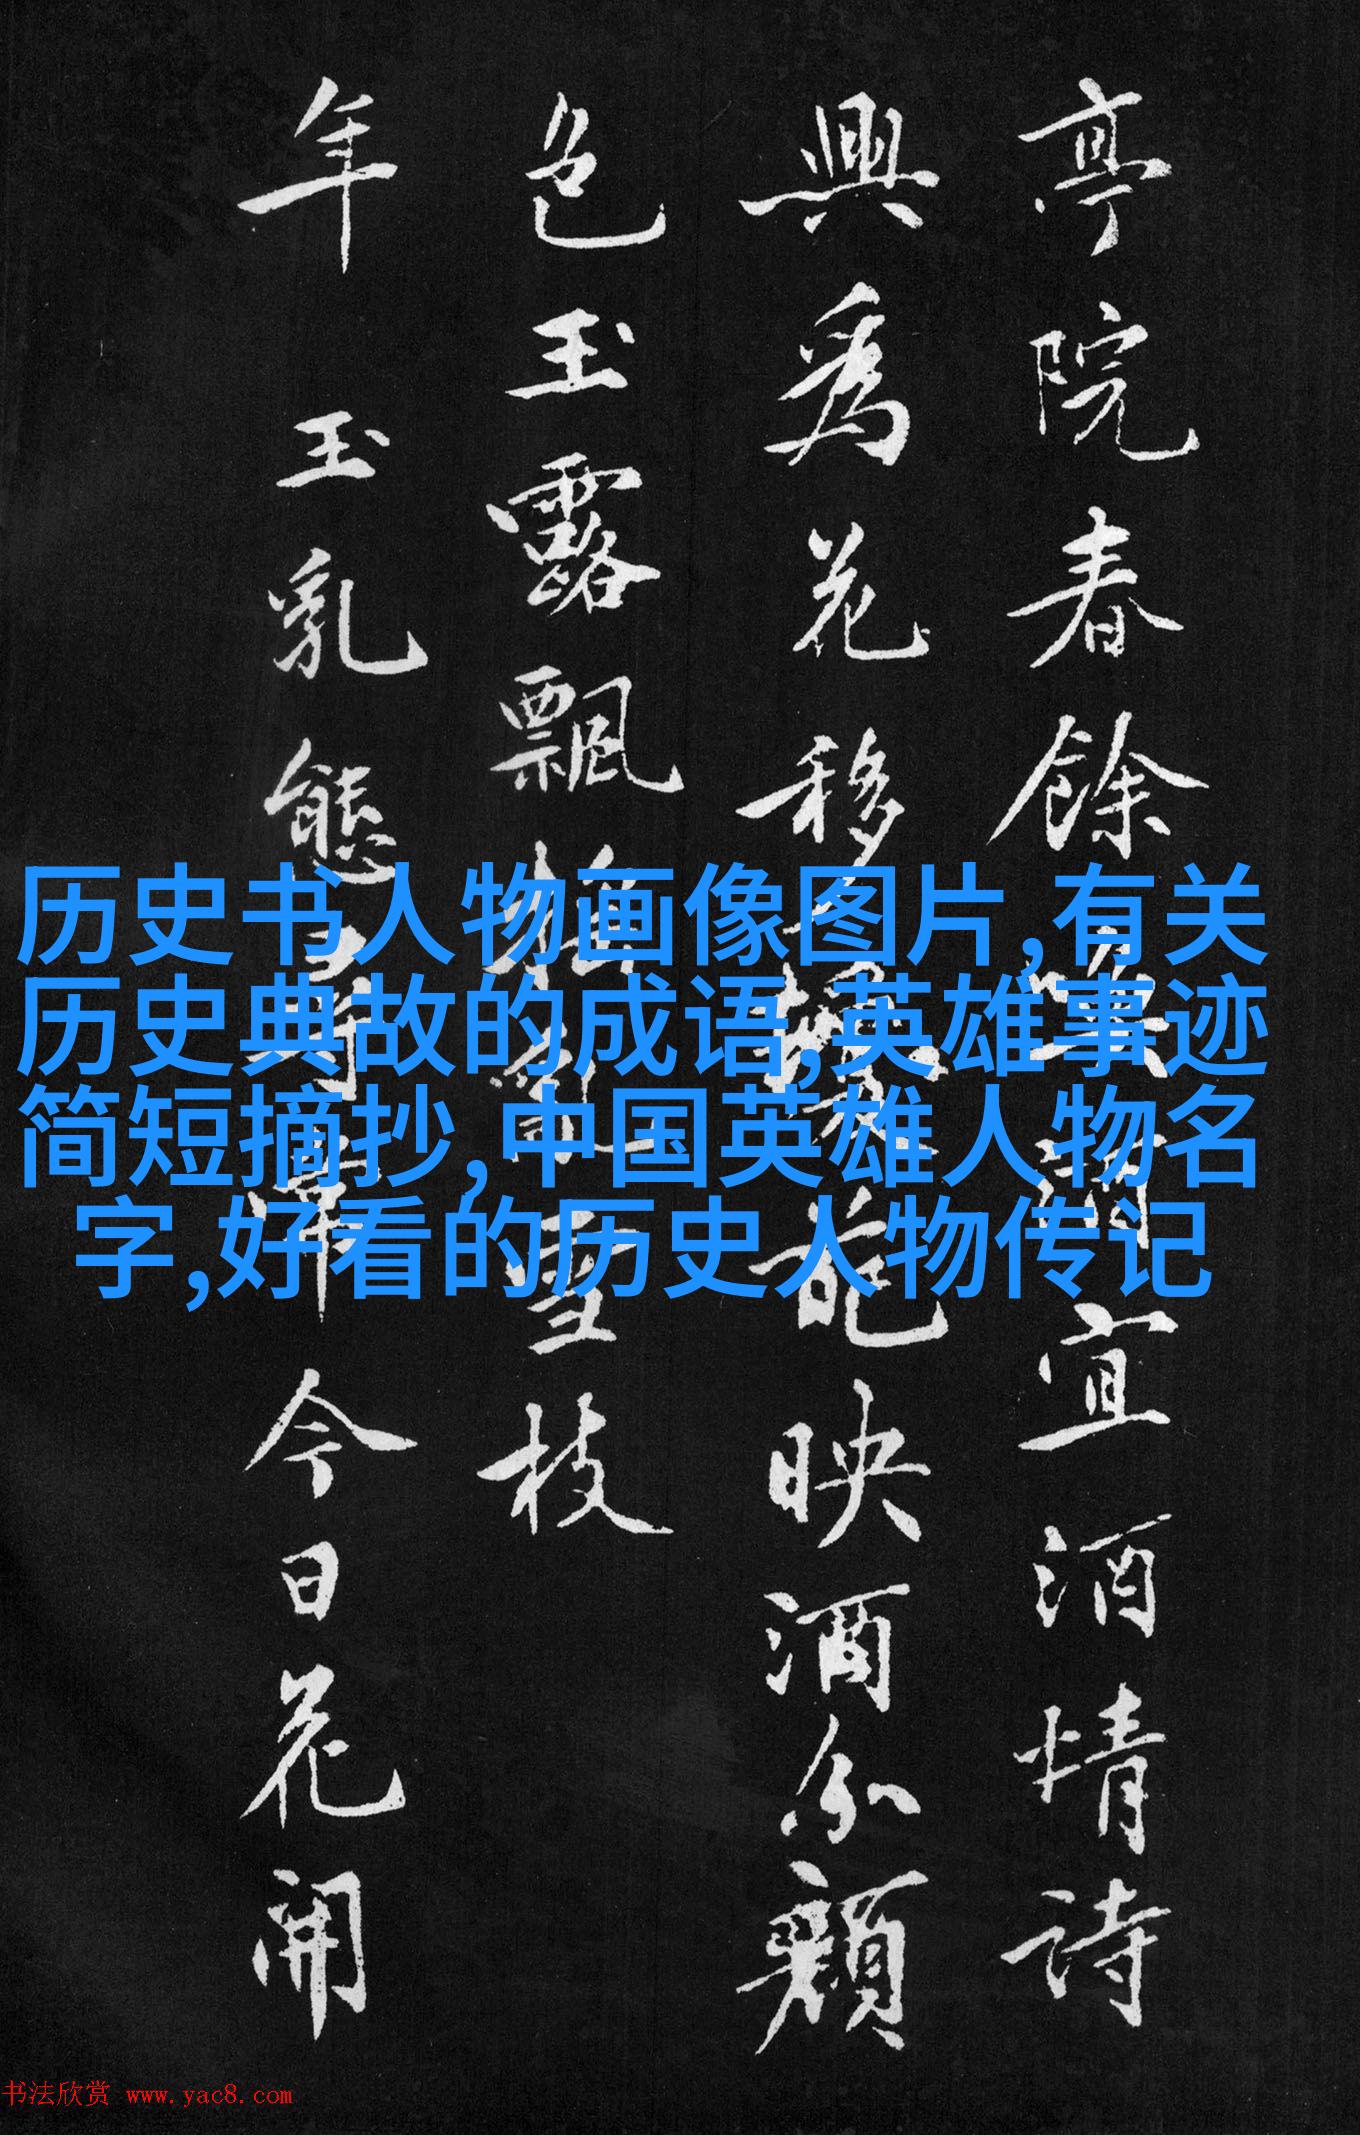 亭院春餘宜酒情詩
興爲花移映酒分顏
色玉露飄梅雪枝
年 玉乳態今日花開
历史书人物画像图片,有关
历史典故的成语,英雄事迹
简短摘抄,中国英雄人物名
字,好看的历史人物传记
书法欣赏 www.yac8.com